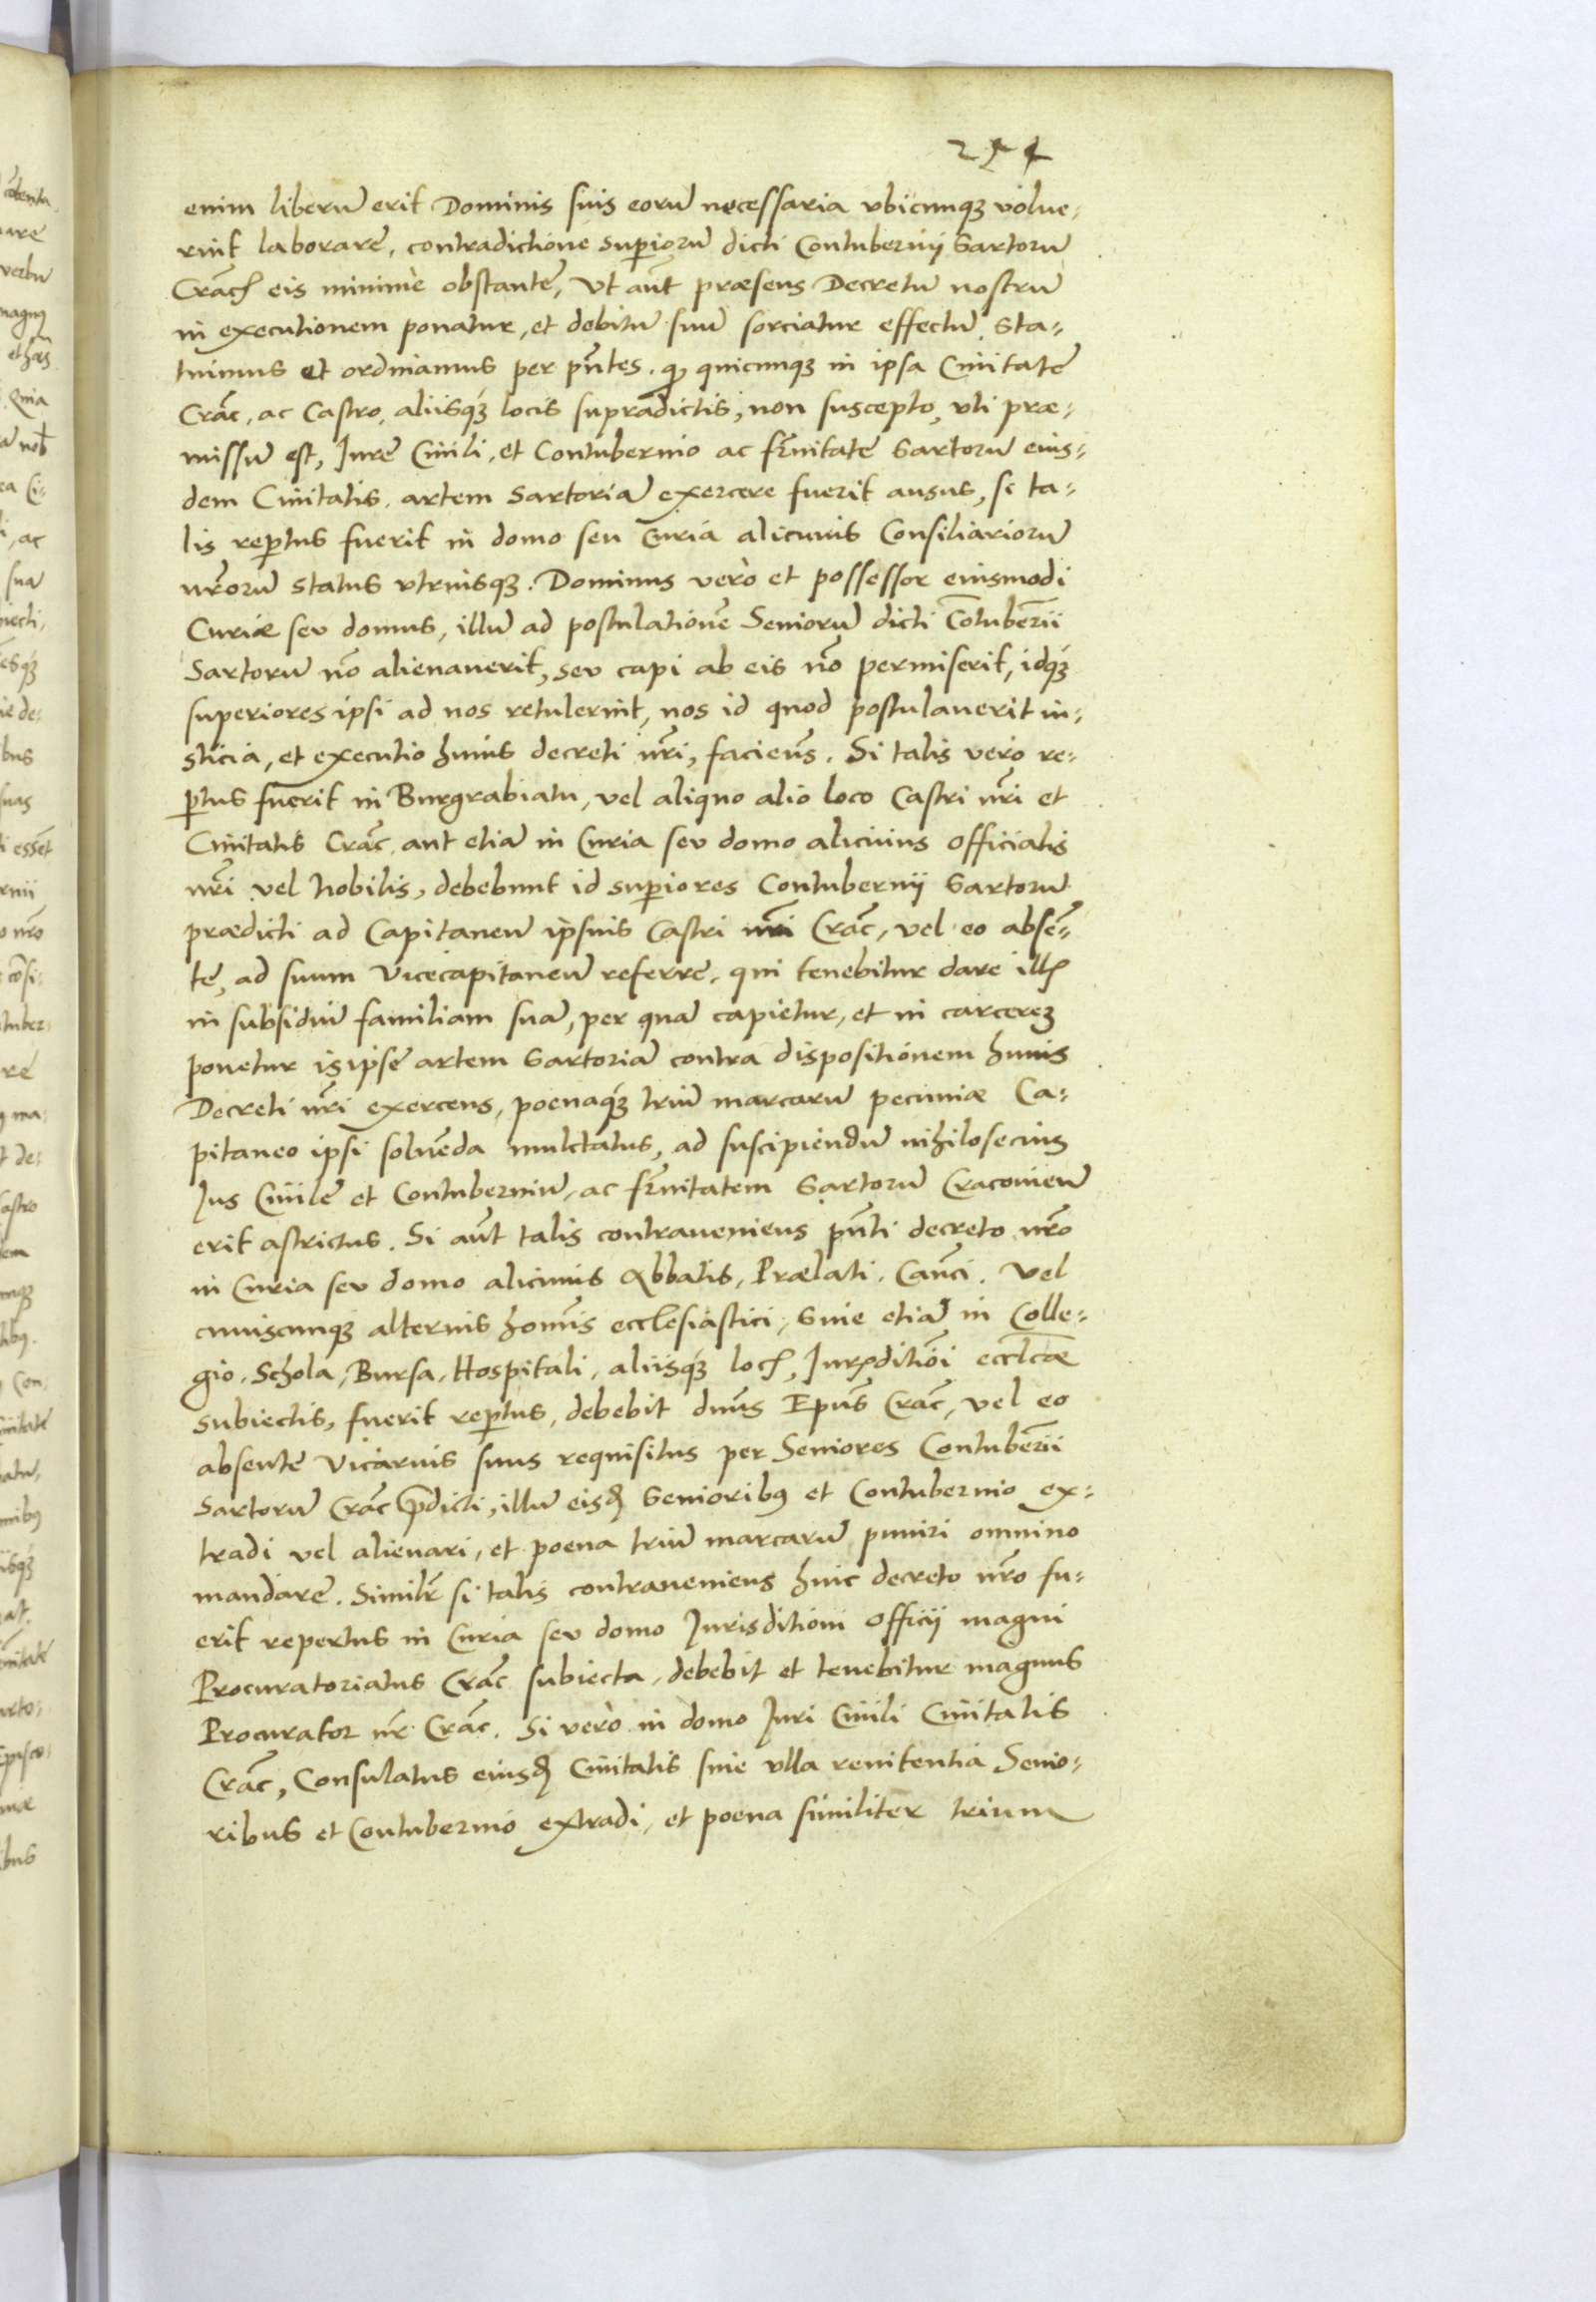 enim liberũ erit Dominis suis eorũ necessaria vbicunqꝫ volue-
rint laborare, contradictione superiorũ dicti Contubernij Sartorũ
eis minime obstante, Vt aũt præsens Decretũ nostrũ
in executionem ponatur, et debitũ suũ sorciatur effectũ, Sta-
tuimus et ordinamus per pñtes. qꝫ quicunqꝫ in ipsa Ciuitate
Crãc, ac Castro, aliisqꝫ locis supradictis, non suscepto, vti præ-
missũ est, Jure Ciuili, et Contubernio ac fr̃nitate Sartorũ eius-
dem Ciuitatis, artem Sartoriã exercere fuerit ausus, si ta-
lis rep̱tus fuerit in domo seu Curia alicuius Consiliariorũ
nr̃orũ status vtriusqꝫ. Dominus verò et possessor eiusmodi
Curiæ seu domus, illũ ad postulationẽ Seniorũ dicti Cõtuber̃ii
Sartorũ nõ alienauerit, seu capi ab eis nõ permiserit, idqꝫ
superiores ipsi ad nos retulerint, nos id quod postulauerit iu-
sticia, et executio huius decreti nr̃i, faciem̃s. Si talis vero re-
p̱tus fuerit in Burgrabiatu, vel aliquo alio loco Castri nr̃i et
Ciuitatis Crãc, aut etiã in Curia seu domo alicuius Officialis
nr̃i vel Nobilis, debebunt id superiores Contubernij Sartorũ
prædicti ad Capitaneũ ipsius Castri nr̃i Crãc, vel eo absẽ-
te, ad suum Vicecapitaneũ referre, qui tenebitur dare illꝭ
in subsidiũ familiam suã, per quã capietur, et in carcerẽ
ponetur is ipse artem Sartoriã contra dispositionem huius
Decreti nr̃i exercens, poenaqꝫ triũ marcarũ pecuniæ Ca-
pitaneo ipsi soluẽda mulctatus, ad suscipiendũ nihilosecius
Jus Ciuile et Contuberniũ, ac fr̃nitatem Sartorũ Cracovieñ
erit astrictus. Si aũt talis contraueniens pñti decreto nr̃o
in Curia seu domo alicuius Abbatis, Prælati, Cañci, Vel
cuiuscunqꝫ alterius homĩs ecclesiastici, Siue etiã in Colle-
gio, Schola, Bursa, Hospitali, aliisqꝫ locꝭ, Jurꝭditiõi eccl̃cæ
subiectis, fuerit rep̱tus, debebit dñus Ep̃us Crãc, vel eo
absente Vicarius suus requisitus per Seniores Contuber̃ii
Sartorũ Crãc p̃dicti, illũ eisdꝫ Senioribꝰ et Contubernio ex-
tradi vel alienari, et poena triũ marcarũ puniri omnino
mandare. Similr̃ si talis contraueniens huic decreto nr̃o fu-
erit repertus in Curia seu domo Jurisditioni Officij magni
Procuratoriatus Crãc subiecta, debebit et tenebitur magnus
Procurator nr̃ Crãc. Si verò in domo Juri Ciuili Ciuitatis
Crãc, Consulatus eiusdꝫ Ciuitatis siue vlla renitentia Senio-
ribus et Contubernio extradi, et poena similiter trium